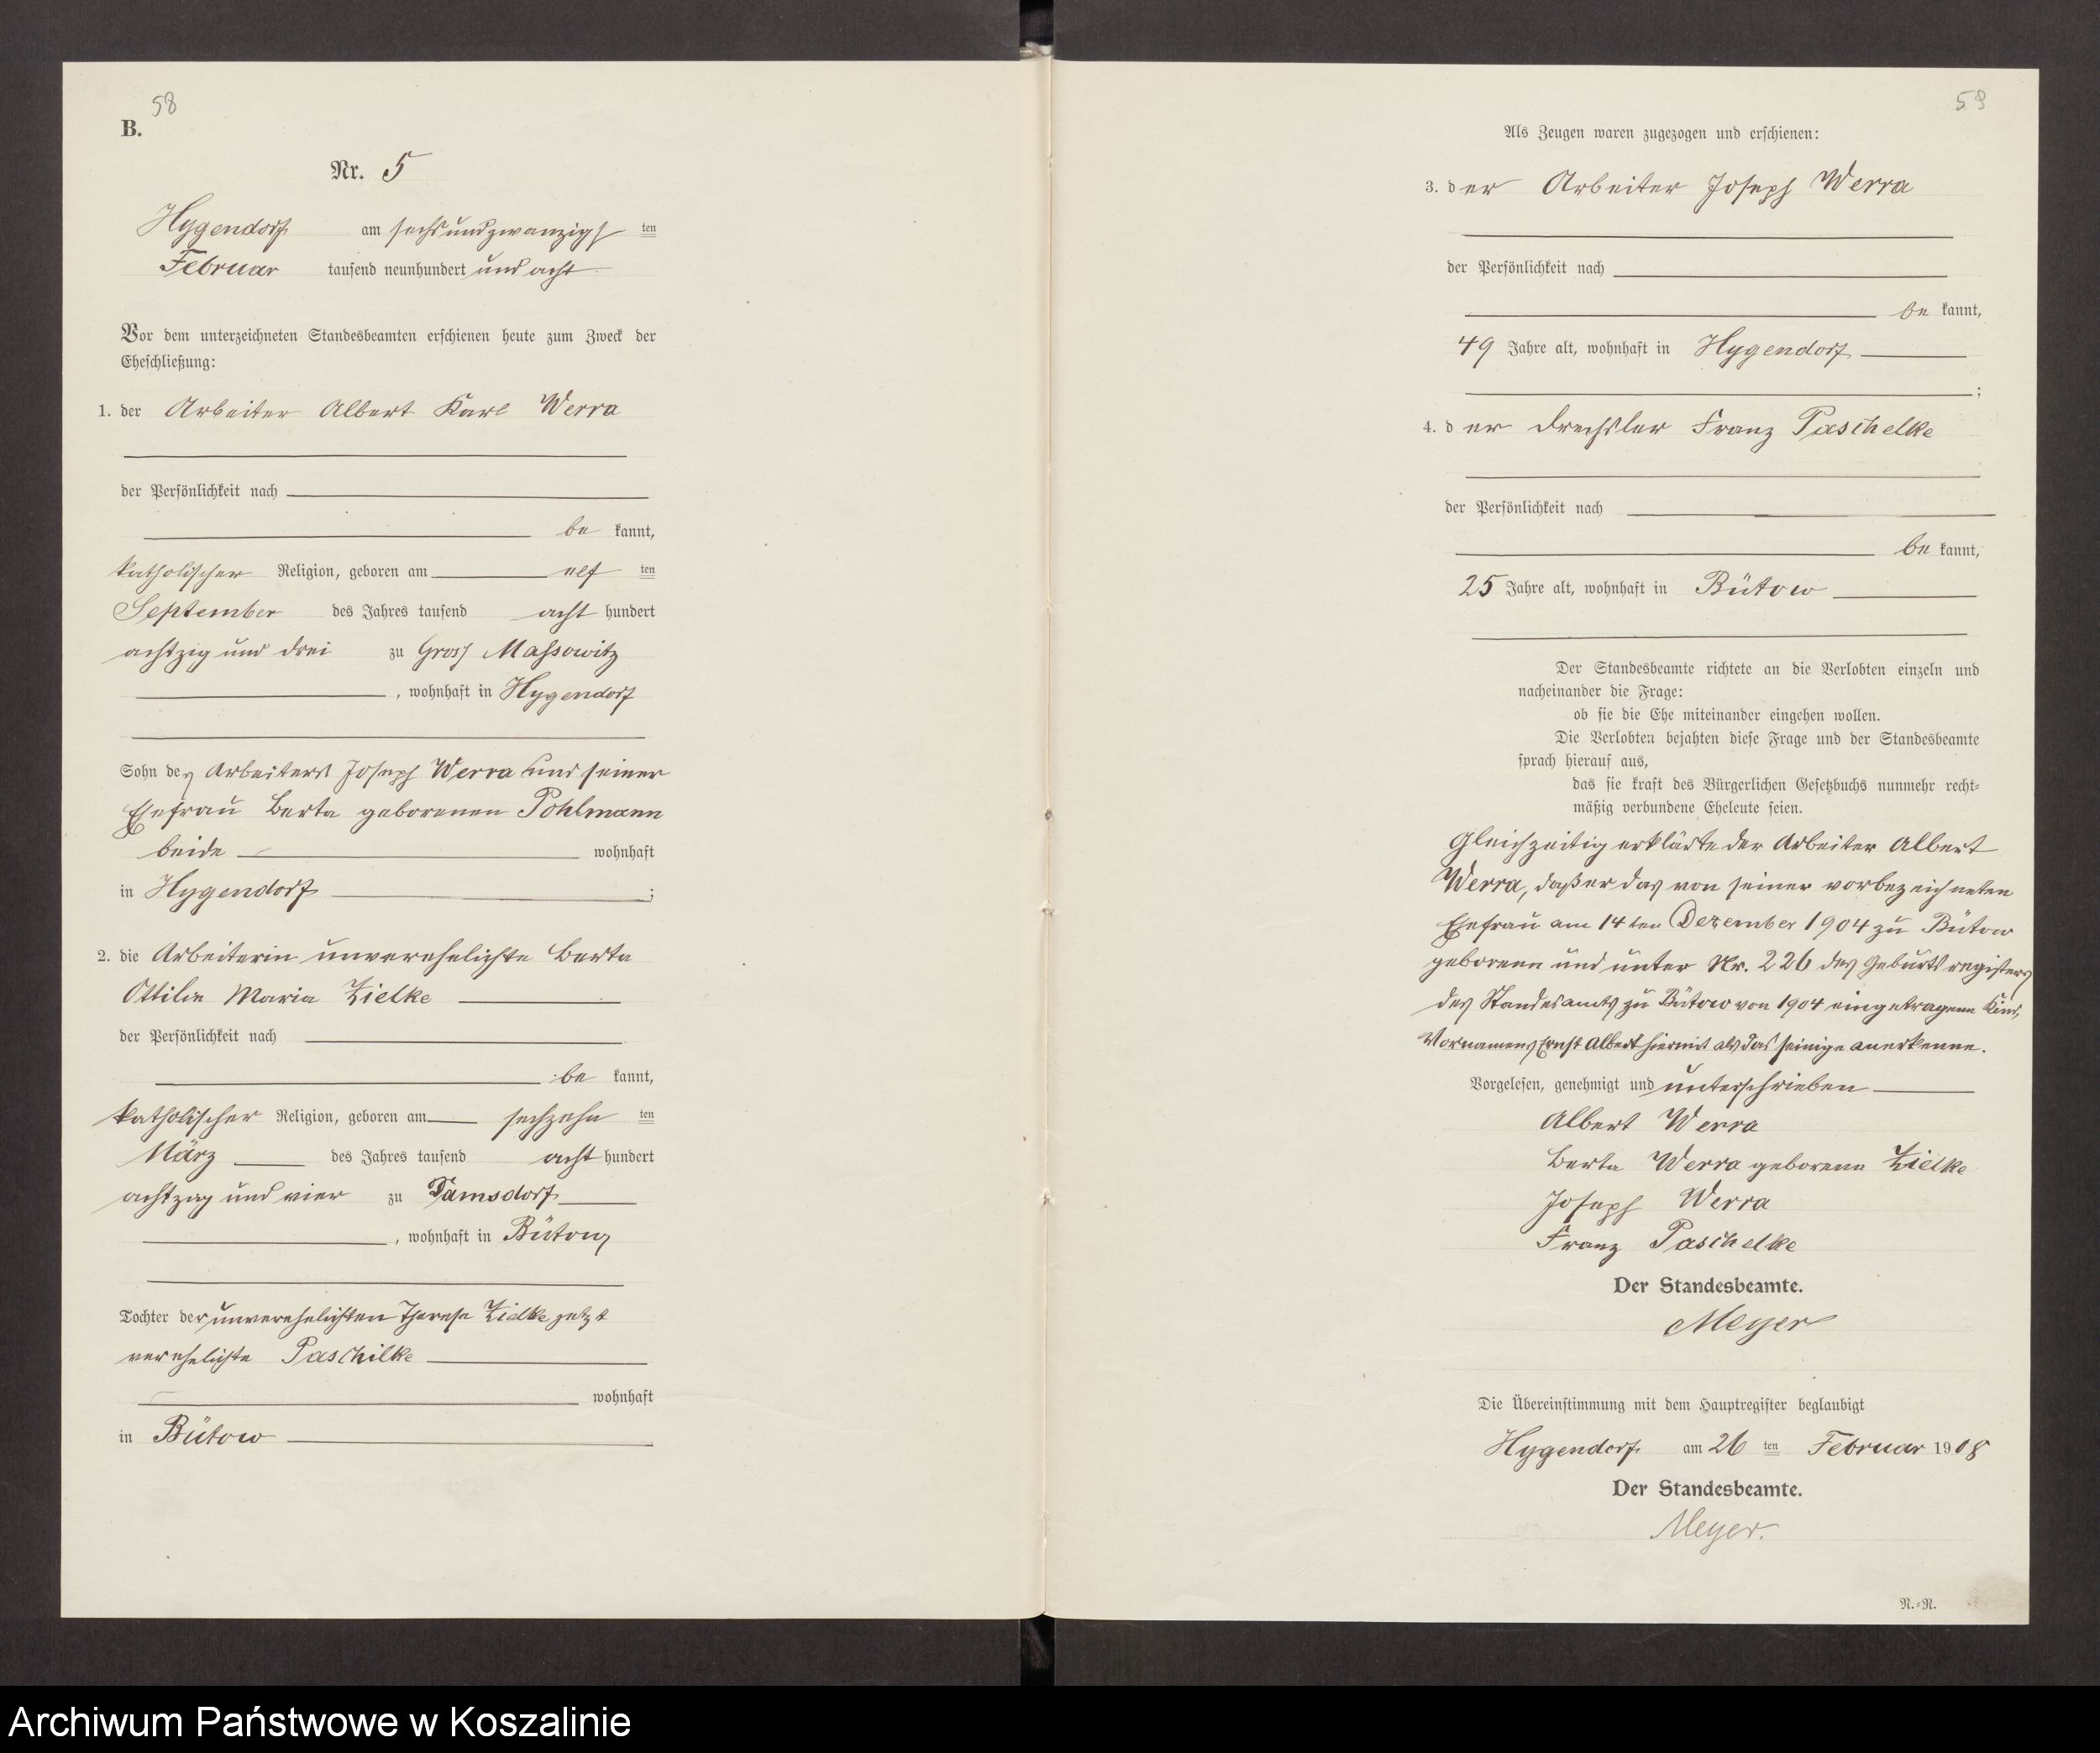 58
B.
Nr. 5
Hygendorf am sechsundzwanzigsten
Februar tausend neunhundert und acht
Vor dem unterzeichneten Standesbeamten erschienen heute zum Zweck der
Eheschließung:
1. der Arbeiter Albert Karl Werra
der Persönlichkeit nach
be kannt,
katholischer Religion, geboren am elf ten
September des Jahres tausend acht hundert
achtzig und drei zu Gross Massowitz
, wohnhaft in Hygendorf
Sohn des Arbeiters Joseph Werra und seiner
Ehefrau Berta geborenen Pohlmann
beide wohnhaft
in Hygendorf ;
2. die Arbeiterin unverehelichte Berta
Ottilie Maria Zielke
der Persönlichkeit nach
be kannt,
katholischer Religion, geboren am sechzehn ten
März des Jahres tausend acht hundert
achtzig und vier zu Damsdorf
, wohnhaft in Bütow
Tochter der unverehelichten Therese Zielke jetzt
verehelichte Paschilke
wohnhaft
in Bütow
59
Als Zeugen waren zugezogen und erschienen:
3. der Arbeiter Joseph Werra
der Persönlichkeit nach
be kannt,
49 Jahre alt, wohnhaft in Hygendorf
;
4. der Drechsler Franz Paschelke
der Persönlichkeit nach
be kannt,
25 Jahre alt, wohnhaft in Bütow
Der Standesbeamte richtete an die Verlobten einzeln und
nacheinander die Frage:
ob sie die Ehe miteinander eingehen wollen.
Die Verlobten bejahten diese Frage und der Standesbeamte
sprach hierauf aus,
das sie kraft des Bürgerlichen Gesetzbuchs nunmehr recht-
mäßig verbundene Eheleute seien.
Gleichzeitig erklärte der Arbeiter Albert
Werra, daß er das von seiner vorbezeichneten
Ehefrau am 14ten Dezember 1904 zu Bütow
geborene und unter Nr. 226 des Geburtsregisters
des Standesamts zu Bütow von 1904 eingetragene Kind,
Vornamens Ernst Albert hiermit als das seinige anerkenne.
Vorgelesen, genehmigt und unterschrieben
Albert Werra
Berta Werra geborene Zielke
Joseph Werra
Franz Paschelke
Der Standesbeamte.
Meyer
Die Übereinstimmung mit dem Hauptregister beglaubigt
Hygendorf am 26 ten Februar 1908
Der Standesbeamte.
Meyer.
R.-R.
Archiwum Państwowe w Koszalinie